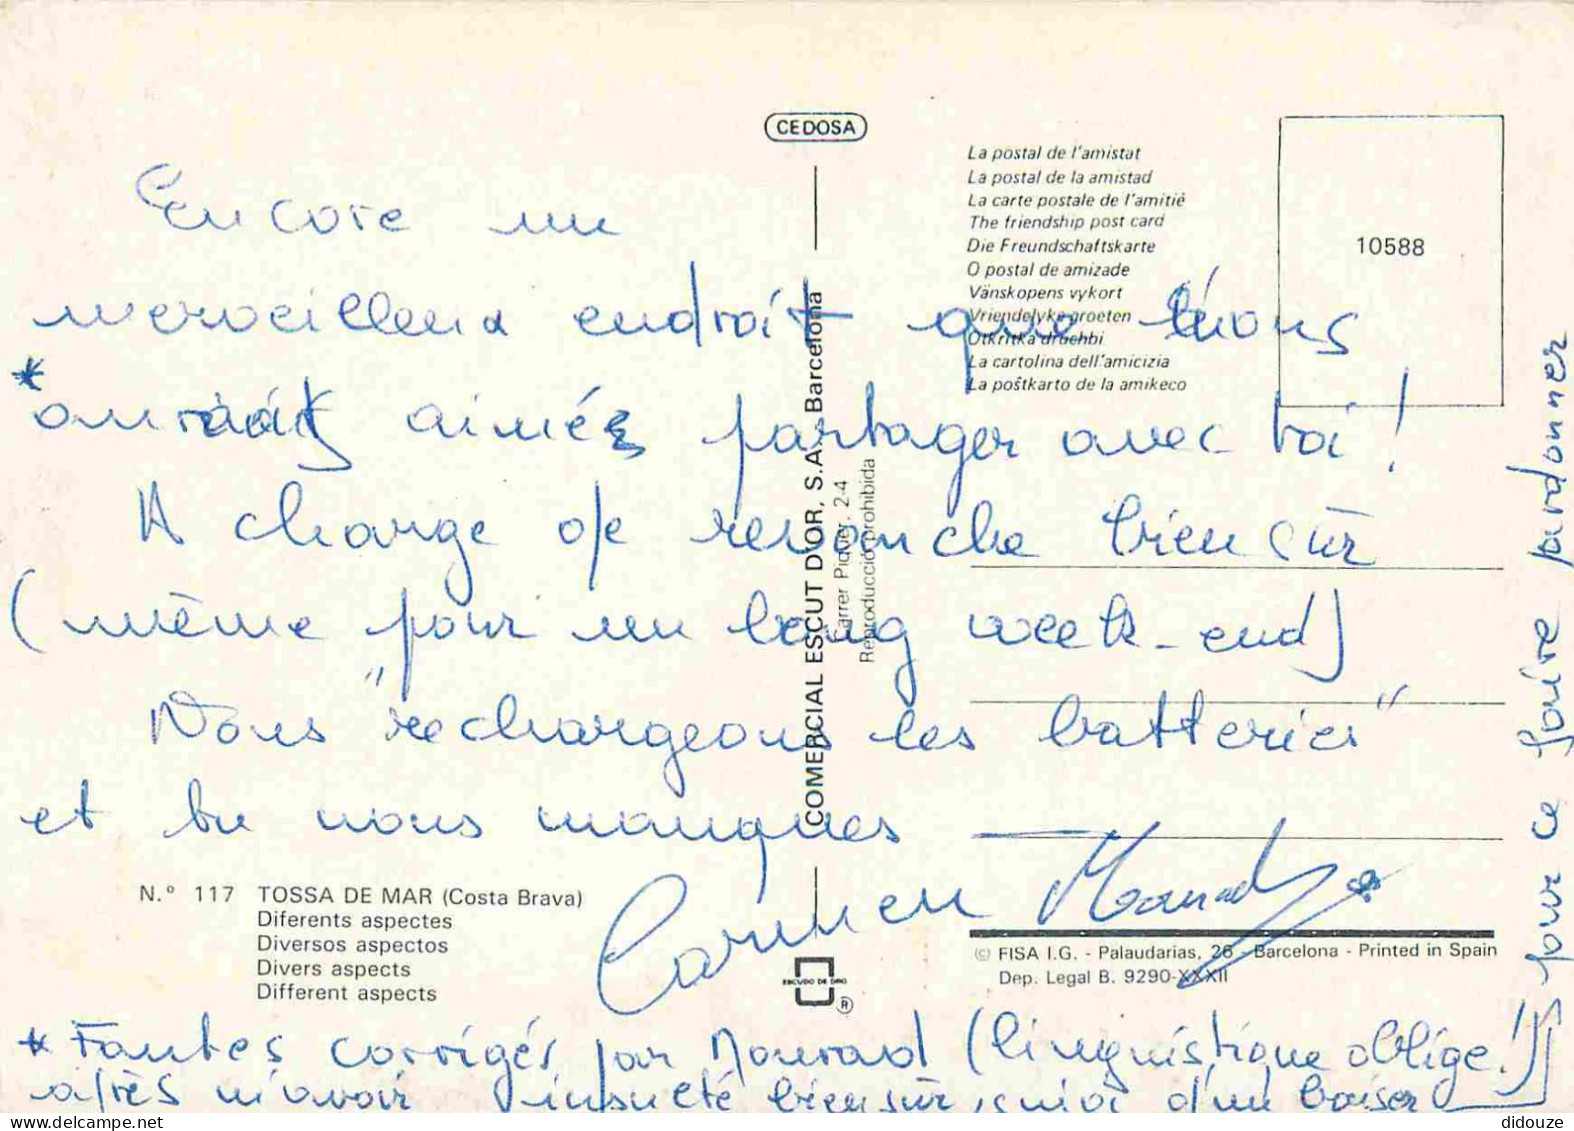 CEDOSA
La postal de l'amistat
La postal de la amistad
La carte postale de l'amitié
The friendship post card
Die Freundschaftskarte
O postal de amizade
Vänskopens vykort
Vriendelyke groeten
Otkritka druchbi
La cartolina dell'amicizia
La poŝtkarto de la amikeco
10588
Encore un
merveilleux endroit que
* aimé partager avec toi !
A charge de revanche bien sûr
(même pour un long week-end)
Nous "rechargeons les batteries"
et tu nous manques
Carmen Mourad
COMERCIAL ESCUT D'OR, S.A. Barcelona
Carrer Piquer, 2-4
Reproducció prohibida
N.º 117 TOSSA DE MAR (Costa Brava)
Diferents aspectes
Diversos aspectos
Divers aspects
Different aspects
ESCUDO DE ORO
®
© FISA I.G. - Palaudarias, 26 - Barcelona - Printed in Spain
Dep. Legal B. 9290-XXXII
* Fautes corrigés par Mourad (linguistique oblige !)
après m'avoir insulté bien sûr, suivi d'un baiser
pour ce faire pardonner
didouze